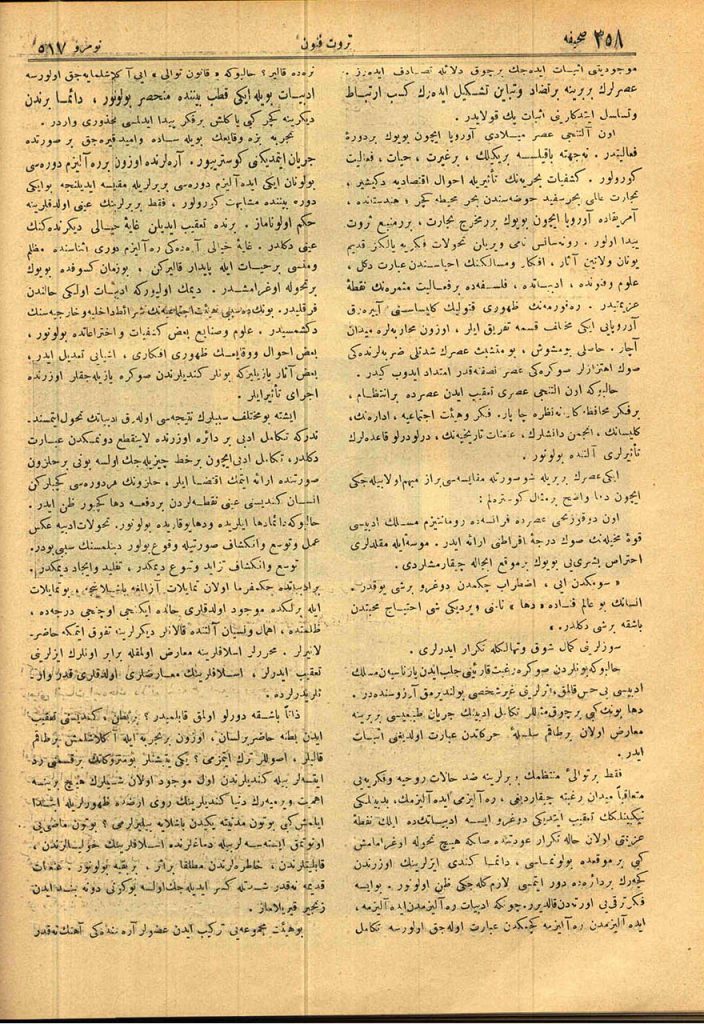 ٣٥٨ صحيفه
ثروت فنون
نومرو ٥١٧
موجوديتنى اثبات ايده‌جك برچوق دلائله تصادف ايدەرز.
عصرلرك بربرينه برتضاد وتباين تشكيل ايدەرك كسب ارتباط
وتسلسل ايتدكلرينى اثبات پك قولايدر.
اون آلتنجى عصر ميلادى آوروپا ايچون بويوك بردورۀ
فعاليتدر. نه‌جهته باقيلسه بريكيلك، برغيرت، حيات، فعاليت
كورولور. كشفيات بحريه‌نك تأثيريله احوال اقتصاديه دكيشير،
تجارت عالمى بحرسفيد حوضه‌سندن بحر محيطه كچر، هندستانده،
آمريقاده آوروپا ايچون بويوك برر مخرج تجارت، بررمنبع ثروت
پيدا اولور. رونه‌سانس نامى ويريلن تحولات فكريه يالكز قديم
يونان ولاتين آثار، افكار ومسالكنك احياسندن عبارت دكل،
علوم وفنونده، ادبياتده، فلسفه‌ده برفعاليت مثمره‌نك نقطۀ
عزيمتيدر. ره‌فورمه‌نك ظهورى قتوليك كليساسنى آييره‌رق
آوروپايى ايكى مخالف قسمه تفريق ايلر، اوزون محاربه‌لره ميدان
آچار. حاصلى بوشورش، بومتشبث عصرك شدتلى ضربه‌لرندەكى
صوك اهتزازلر صوكره‌كى عصر نصفنه‌قدر امتداد ايدوب كيدر.
حالبوكه اون آلتنجى عصرى تعقيب ايدن عصرده برانتظام،
برفكر محافظه‌كارانه نظره چارپار. فكر وهيئت اجتماعيه، اداره‌نك،
كليسانك، انجمن دانشلرك، عنعنات تاريخيه‌نك، درلودرلو قاعده‌لرك
تأثيرلرى آلتنده بولونور.
ايكى عصرك بربريله شو صورتله مقايسه‌سى براز مبهم اولابيله‌جكى
ايچون دها واضح برمثال كوسترەلم:
اون دوقوزنجى عصرده فرانسه‌ده رومانتيزم مسلك ادبيسى
قوۀ مخيله‌نك صوك درجۀ افراطنى ارائه ايدر. موسه‌ايله مقلدلرى
احتراص بشرى‌يى بويوك برموقع ابجاله چيقارمشلردى.
« سومكدن ايى، اضطراب چكمدن دوغرو برشى يوقدر.
انسانك بو عالم فناده « دها » نامنى ويرديكى شى احتياج محبتدن
باشقه برشى دكلدر. »
سوزلرينى كمال شوق وتهالكله تكرار ايدرلردى.
حالبوكه بونلردن صوكره رغبت قارئينى جلب ايدن پارناسيەن مسلك
ادبيسى بى‌حس قالمق، اثرلرينى غيرشخصى بولنديرمق آرزوسنده‌در.
دها بونك كبى برچوق مثاللر تكامل ادبينك جريان طبيعيسى بربرينه
معارض اولان برطاقم سلسلۀ حركاتدن عبارت اولديغنى اثبات
ايدر.
فقط برتوالئ منتظمك، بربرلرينه ضد حالات روحيه وفكريه‌يى
متعاقباً ميدان رغبته چيقارديغى، ره‌آليزمى ايده‌آليزمك، بدبينلكى
نيكبينلكك تعقيب ايتديكى دوغرو ايسه ادبياتك‌ده ايلك نقطۀ
عزيمتى اولان حاله تكرار عودتنده صانكه هيچ تحوله اوغرامامش
كبى برموقعده بولونماسى، دائما كندى ايزلرينك اوزرندن
كچه‌رك بردائره‌ده دور ايتمسى لازم كله‌جكى ظن اولونور. بوايسه
فكر ترقى‌يى اورته‌دن قالديرر. چونكه ادبيات ره‌آليزمدن ايده‌آليزمه،
ايده‌آليزمدن ره‌آليزمه كچمكدن عبارت اوله‌جق اولورسه تكامل
نره‌ده قالير؟ حالبوكه « قانون توالى » ايى آكلاشلمايه‌جق اولورسه
ادبيات بويله ايكى قطب بيننده منحصر بولونور، دائما برندن
ديكرينه كچر كبى ياكلش برفكر پيدا ايدلمسى محذورى واردر.
تجربه بزه وقايعك بويله ساده واميد قيره‌جق بر صورتده
جريان ايتمديكنى كوسترييور. آره‌لرنده اوزون برره‌آليزم دوره‌سى
بولونان ايكى ايده‌آليزم دوره‌سى بربرلريله مقايسه ايديلنجه بوايكى
دوره بيننده مشابهت كورولور، فقط بربرلرينك عينى اولدقلرينه
حكم اولوناماز. برنده تعقيب ايديلن غايۀ خيالى ديكرنده‌كنك
عينى دكلدر. غايۀ خيالى آره‌ده‌كى ره‌آليزم دورى اثناسنده مظلم
ومنسى برحيات ايله پايدار قاليركن، بوزمان كسوفده بويوك
برتحوله اوغرامشدر. ديمك اوليوركه ادبيات اولكى حالندن
فرقليدر. بونك‌ده سببى هيئت اجتماعيه‌نك شرائط داخليه وخارجيه‌سنك
دكشمه‌سيدر. علوم وصنايع بعض كشفيات واختراعاتده بولونور،
بعض احوال ووقايعك ظهورى افكارى، اشيايى تعديل ايدر،
بعض آثار يازيليركه بونلر كنديلرندن صوكره يازيله‌جقلر اوزرنده
اجراى تأثير ايلر.
ايشته بومختلف سببلرك نتيجه‌سى اوله‌رق ادبياتك تحول ايتمسنده‌
ندركه تكامل ادبى بر دائره اوزرنده لاينقطع دونمكدن عبارت
دكلدر، تكامل ادبى ايچون برخط چيزيله‌جك اولسه بونى برحلزون
صورتنده ارائه ايتمك اقتضا ايلر، حلزونك هردوره‌سى كچيلركن
انسان كنديسنى عينى نقطه‌لردن بردفعه‌ دها كچيور ظن ايدر.
حالبوكه دائما دها ايلريده ودها يوقاريده بولونور. تحولات ادبيه عكس
عمل وتوسع وانكشاف صورتيله وقوع بولور ديلمسنك سببى بودر.
توسع وانكشاف تزايد وتنوع ديمكدر، تقليد وايجاد ديمكدر.
برادبياتده حكمفرما اولان تمايلات آزالمغه باشلاينجه، بوتمايلات
ايله برلكده موجود اولدقلرى حالده ايكنجى اوچنجى درجه‌ده،
ظلمتده، اهمال ونسيان آلتنده قالانلر ديكرلرينه تفوق ايتمكه حاضر-
لانيرلر. محررلر اسلافلرينه معارض اولمغله برابر اونلرك ايزلرينى
تعقيب ايدرلر، اسلافلرينك معارضلرى اولدقلرى قدر وار-
ثلريدرلرده.
ذاتاً باشقه دورلو اولمق قابلميدر؟ بربطن، كنديسنى تعقيب
ايدن بطنه حاضربرلسان، اوزون برتجربه ايله آكلاشلمش برطاقم
قالبلر، اصوللر ترك ايتمزمى؟ يكى يتيشنلر بومتروكاتك برقسمنى رد
ايتسه‌لر بيله كنديلرندن اول موجود اولان شيلرك هيچ برينه
اهميت ويرميه‌رك دنيا كنديلرينك روى ارضده ظهورلريله ابتدا
ايله‌مش كبى بوتون مدنيته يكيدن باشلايه بيليرلرمى؟ بوتون ماضى‌يى
اونوتمق ايسته‌سه‌لر بيله دماغلرنده اسلافلرينك خوليالرندن،
قابليتلرندن، خاطره‌لرندن مطلقا براثر، بربقيه بولونور. عنعنات
قديمه نه‌قدر شدتله كسر ايديله‌جك اولسه بوكونى دونه بند ايدن
زنجير قيريلاماز.
بوهيئت مجموعه‌يى تركيب ايدن عضولر آره‌سنده‌كى آهنك نه‌قدر